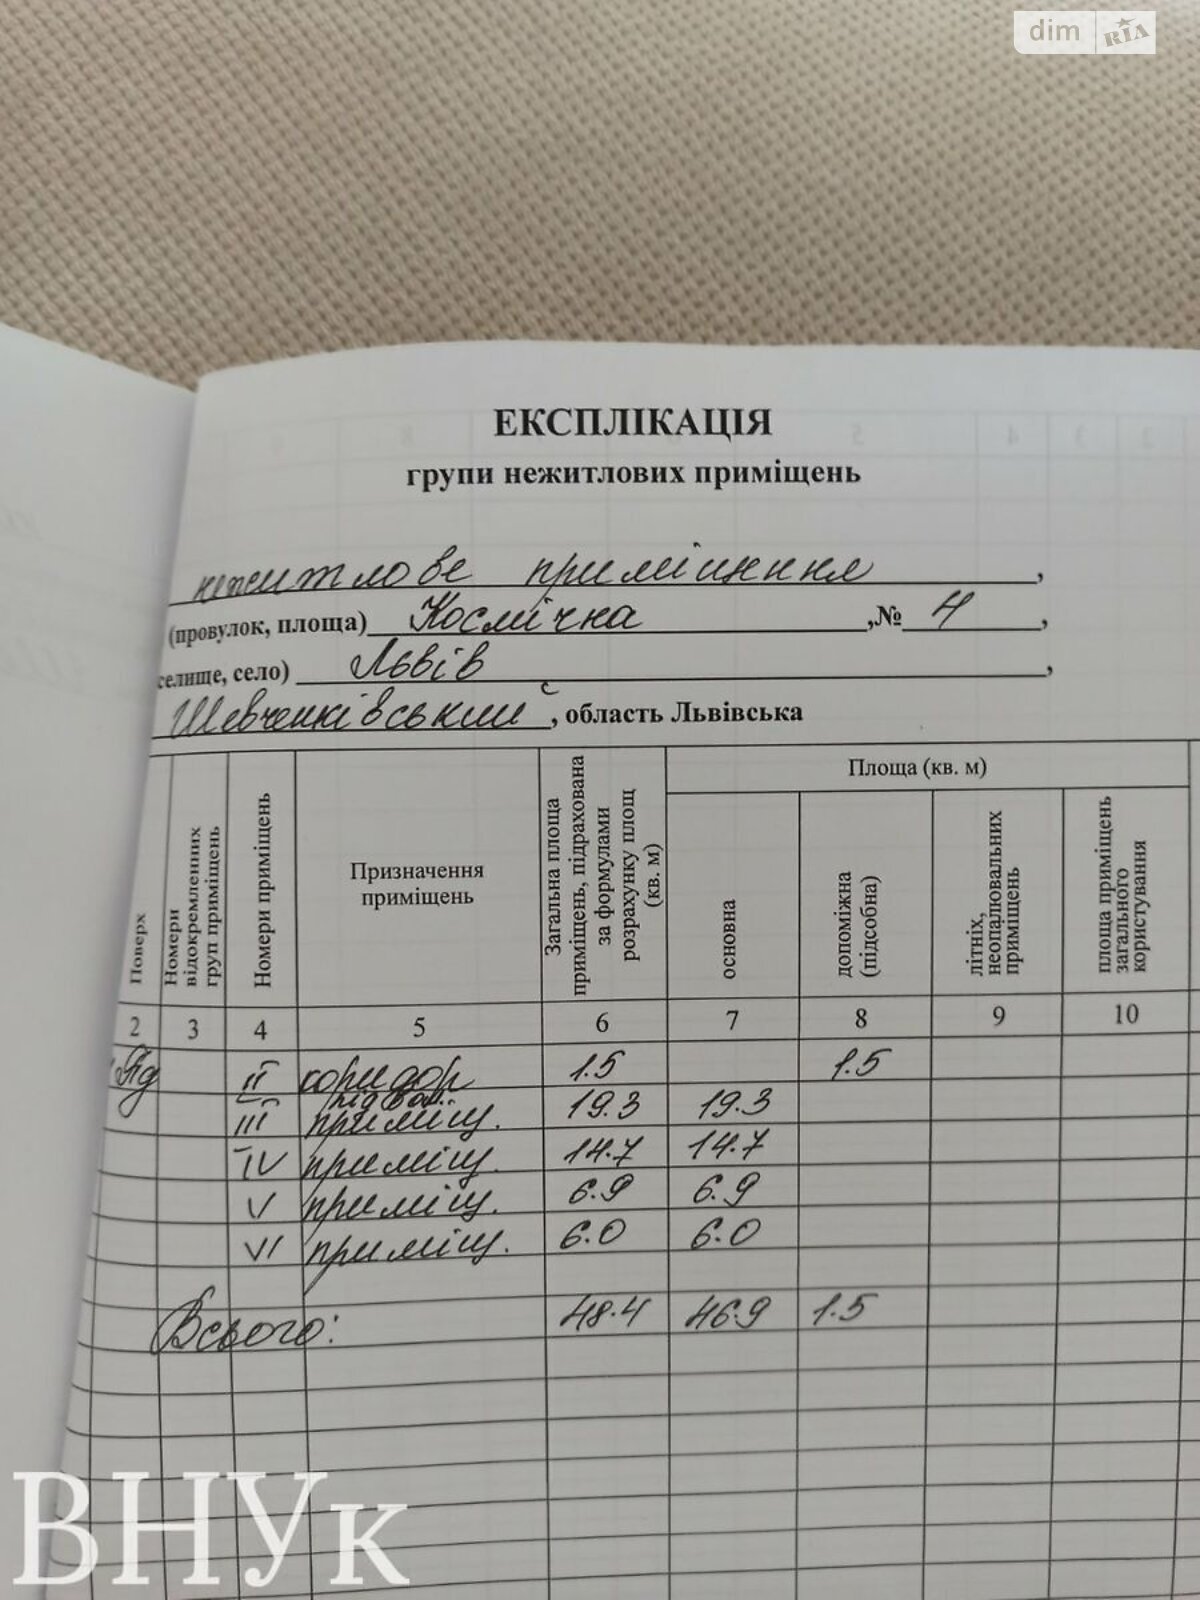 dim RIA
ЕКСПЛІКАЦІЯ
групи нежитлових приміщень
нежитлове приміщення,
(провулок, площа) Космічна,№ 4,
селище, село) Львів,
Шевченківський, область Львівська
Поверх
Номери відокремленних груп приміщень
Номери приміщень
Призначення приміщень
Загальна площа приміщень, підрахована за формулами розрахунку площ (кв. м)
Площа (кв. м)
основна
допоміжна (підсобна)
літніх, неопалювальних приміщень
площа приміщень загального користування
2 3 4 5 6 7 8 9 10
Пд II коридор 1.5 1.5
підвал.
III приміщ. 19.3 19.3
IV приміщ. 14.7 14.7
V приміщ. 6.9 6.9
VI приміщ. 6.0 6.0
Всього: 48.4 46.9 1.5
ВНУк